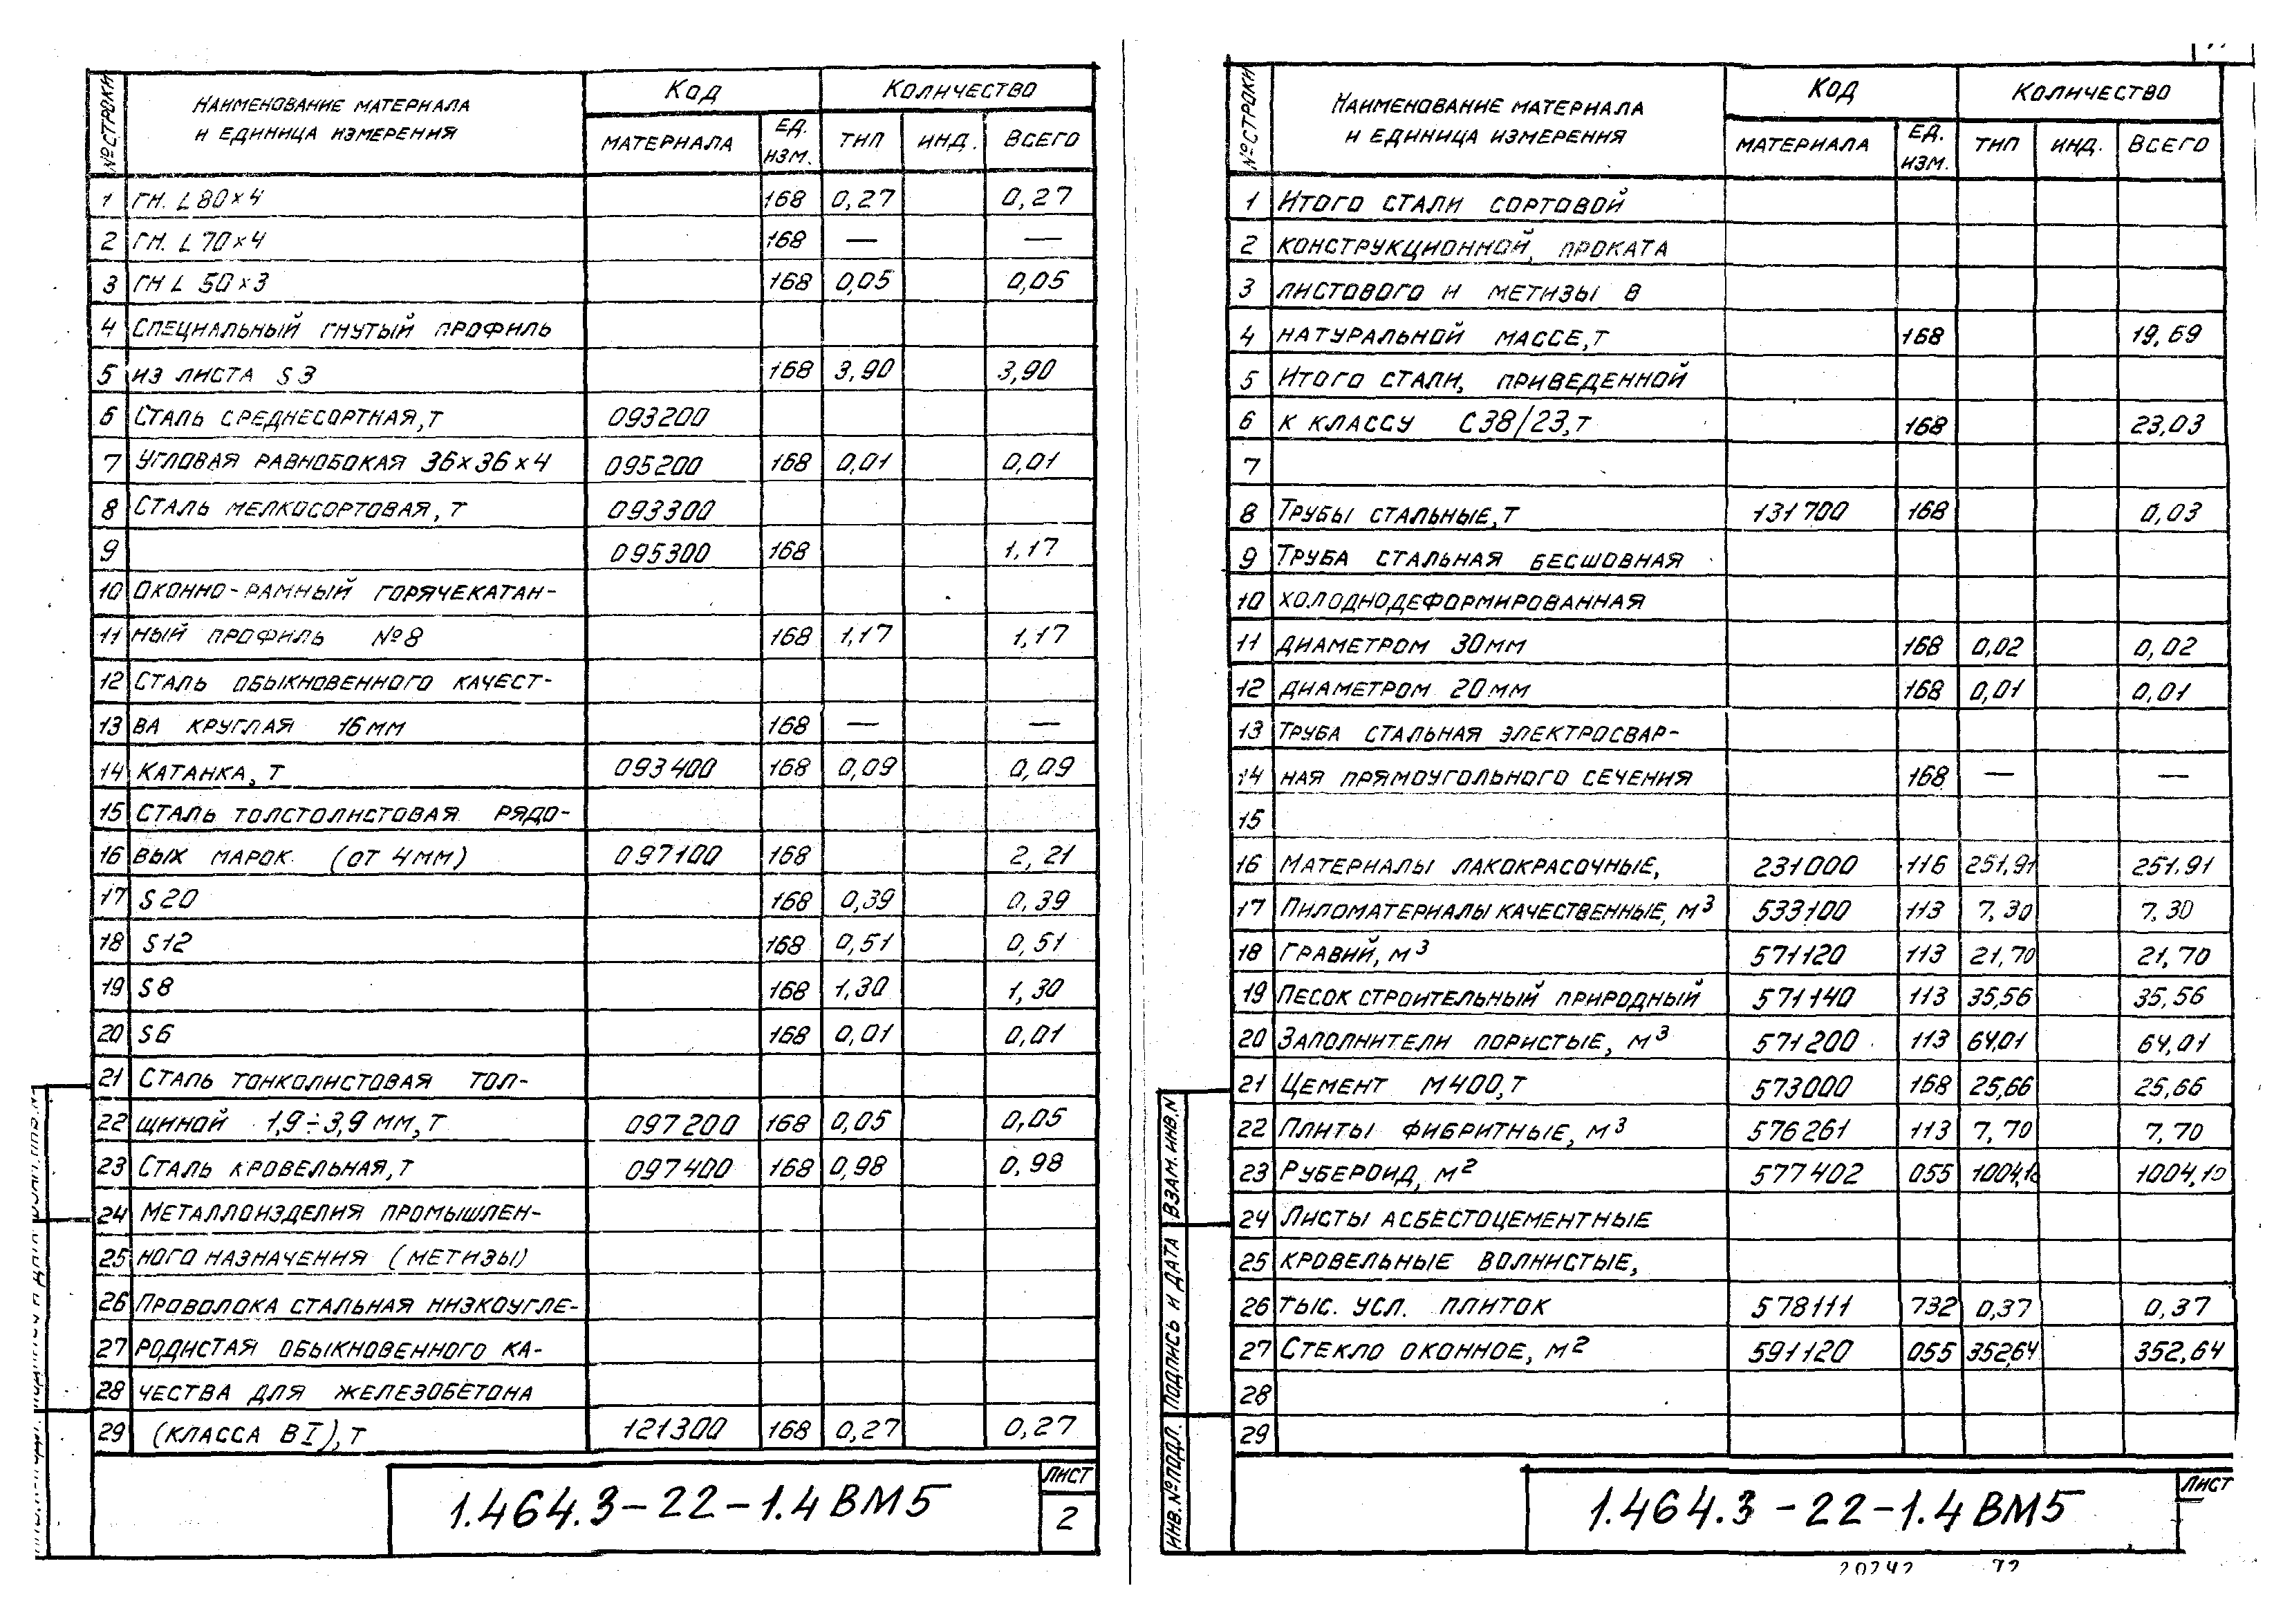 № СТРОКИ НАИМЕНОВАНИЕ МАТЕРИАЛА И ЕДИНИЦА ИЗМЕРЕНИЯ КОД КОЛИЧЕСТВО
МАТЕРИАЛА ЕД. ИЗМ. ТИП ИНД. ВСЕГО
1 ГН. L 80×4 168 0,27 0,27
2 ГН. L 70×4 168 — —
3 ГН L 50×3 168 0,05 0,05
4 СПЕЦИАЛЬНЫЙ ГНУТЫЙ ПРОФИЛЬ
5 ИЗ ЛИСТА S 3 168 3,90 3,90
6 СТАЛЬ СРЕДНЕСОРТНАЯ, Т 093200
7 УГЛОВАЯ РАВНОБОКАЯ 36×36×4 095200 168 0,01 0,01
8 СТАЛЬ МЕЛКОСОРТОВАЯ, Т 093300
9 095300 168 1,17
10 ОКОННО-РАМНЫЙ ГОРЯЧЕКАТАН-
11 НЫЙ ПРОФИЛЬ №8 168 1,17 1,17
12 СТАЛЬ ОБЫКНОВЕННОГО КАЧЕСТ-
13 ВА КРУГЛАЯ 16 ММ 168 — —
14 КАТАНКА, Т 093400 168 0,09 0,09
15 СТАЛЬ ТОЛСТОЛИСТОВАЯ РЯДО-
16 ВЫХ МАРОК (ОТ 4 ММ) 097100 168 2,21
17 S 20 168 0,39 0,39
18 S 12 168 0,51 0,51
19 S 8 168 1,30 1,30
20 S 6 168 0,01 0,01
21 СТАЛЬ ТОНКОЛИСТОВАЯ ТОЛ-
22 ЩИНОЙ 1,9÷3,9 ММ, Т 097200 168 0,05 0,05
23 СТАЛЬ КРОВЕЛЬНАЯ, Т 097400 168 0,98 0,98
24 МЕТАЛЛОИЗДЕЛИЯ ПРОМЫШЛЕН-
25 НОГО НАЗНАЧЕНИЯ (МЕТИЗЫ)
26 ПРОВОЛОКА СТАЛЬНАЯ НИЗКОУГЛЕ-
27 РОДИСТАЯ ОБЫКНОВЕННОГО КА-
28 ЧЕСТВА ДЛЯ ЖЕЛЕЗОБЕТОНА
29 (КЛАССА В I), Т 121300 168 0,27 0,27
1.464.3-22-1.4 ВМ5
ЛИСТ
2
№ СТРОКИ НАИМЕНОВАНИЕ МАТЕРИАЛА И ЕДИНИЦА ИЗМЕРЕНИЯ КОД КОЛИЧЕСТВО
МАТЕРИАЛА ЕД. ИЗМ. ТИП ИНД. ВСЕГО
1 ИТОГО СТАЛИ СОРТОВОЙ
2 КОНСТРУКЦИОННОЙ, ПРОКАТА
3 ЛИСТОВОГО И МЕТИЗЫ В
4 НАТУРАЛЬНОЙ МАССЕ, Т 168 19,69
5 ИТОГО СТАЛИ, ПРИВЕДЕННОЙ
6 К КЛАССУ С38/23, Т 168 23,03
7
8 ТРУБЫ СТАЛЬНЫЕ, Т 131700 168 0,03
9 ТРУБА СТАЛЬНАЯ БЕСШОВНАЯ
10 ХОЛОДНОДЕФОРМИРОВАННАЯ
11 ДИАМЕТРОМ 30 ММ 168 0,02 0,02
12 ДИАМЕТРОМ 20 ММ 168 0,01 0,01
13 ТРУБА СТАЛЬНАЯ ЭЛЕКТРОСВАР-
14 НАЯ ПРЯМОУГОЛЬНОГО СЕЧЕНИЯ 168 — —
15
16 МАТЕРИАЛЫ ЛАКОКРАСОЧНЫЕ, 231000 116 251,91 251.91
17 ПИЛОМАТЕРИАЛЫ КАЧЕСТВЕННЫЕ, М³ 533100 113 7,30 7,30
18 ГРАВИЙ, М³ 571120 113 21,70 21,70
19 ПЕСОК СТРОИТЕЛЬНЫЙ ПРИРОДНЫЙ 571140 113 35,56 35,56
20 ЗАПОЛНИТЕЛИ ПОРИСТЫЕ, М³ 571200 113 64,01 64,01
21 ЦЕМЕНТ М400, Т 573000 168 25,66 25,66
22 ПЛИТЫ ФИБРИТНЫЕ, М³ 576261 113 7,70 7,70
23 РУБЕРОИД, М² 577402 055 1004,10 1004,10
24 ЛИСТЫ АСБЕСТОЦЕМЕНТНЫЕ
25 КРОВЕЛЬНЫЕ ВОЛНИСТЫЕ,
26 ТЫС. УСЛ. ПЛИТОК 578111 732 0,37 0,37
27 СТЕКЛО ОКОННОЕ, М² 591120 055 352,64 352,64
28
29
ИНВ. № ПОДЛ. ПОДПИСЬ И ДАТА ВЗАМ. ИНВ. N
1.464.3-22-1.4 ВМ5
ЛИСТ
20242 72